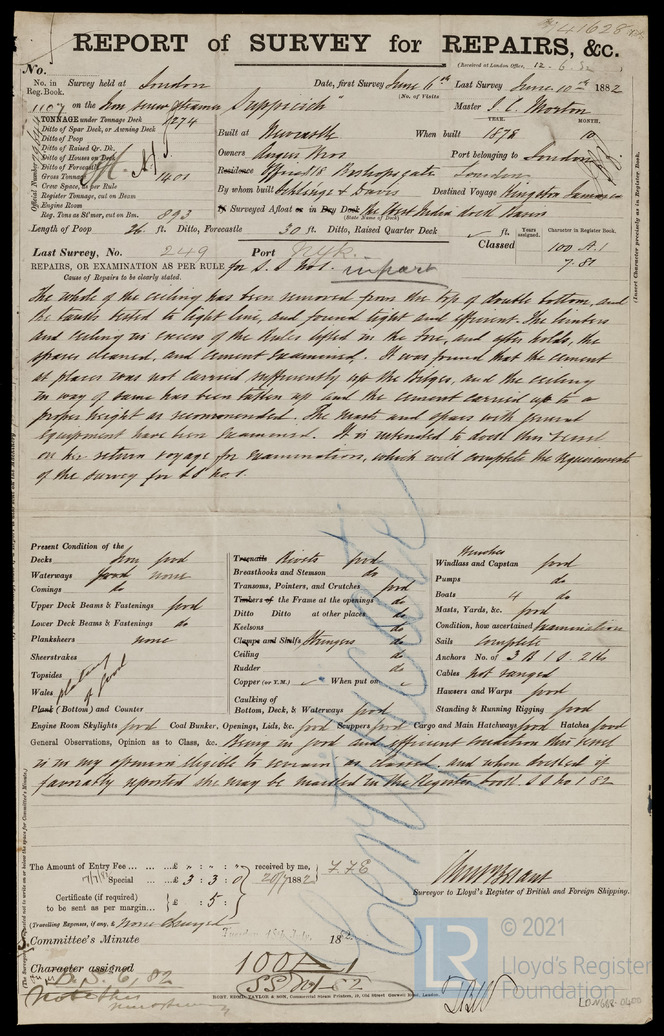 41628
REPORT of SURVEY for REPAIRS, &c.
(Received at London Office, 12. 6. 82
No.
No. in Reg. Book. Survey held at London Date, first Survey June 6th Last Survey June 10th 1882
(No. of Visits
1107 on the Iron screw steamer "Sapphire" Master J. C. Morton
TONNAGE under Tonnage Deck 1274
Ditto of Spar Deck, or Awning Deck
Ditto of Poop
Ditto of Raised Qr. Dk.
Ditto of Houses on Deck
Ditto of Forecastle
Gross Tonnage 1401
Crew Space, as per Rule
Register Tonnage, cut on Beam
Engine Room
Reg. Tons as St'mer, cut on Bm. 893
Official Number
Built at Newcastle When built YEAR. 1878 MONTH. 10
Owners Angier Bros Port belonging to London
Residence Office 18 Bishopsgate London
By whom built Schlesinger & Davis Destined Voyage Kingston Jamaica
If Surveyed Afloat or in Dry Dock the West India Dock Basin
(State Name of Dock)
Length of Poop 26 ft. Ditto, Forecastle 30 ft. Ditto, Raised Quarter Deck ft.
Years assigned. Character in Register Book.
Classed 100 A.1
7.81
(Insert Character precisely as in Register Book.
Last Survey, No. 249 Port N.Yk.
REPAIRS, OR EXAMINATION AS PER RULE for S.S No 1. in part
Cause of Repairs to be clearly stated.
The whole of the ceiling has been removed from the top of double bottom, and
the tanks tested to light line, and found tight and efficient. The limbers
and ceiling in excess of the Rules lifted in the fore, and after holds, the
spaces cleaned, and cement examined. It was found that the cement
at places was not carried sufficiently up the bilges, and the ceiling
in way of same has been taken up and the cement carried up to a
proper height as recommended. The masts and spars with general
equipment have been examined. It is intended to dock this vessel
on her return voyage for examination, which will complete the requirements
of the survey for S.S No. 1.
Present Condition of the
Decks Iron good
Waterways good none
Comings do
Upper Deck Beams & Fastenings good
Lower Deck Beams & Fastenings do
Planksheers none
Sheerstrakes
Topsides
Wales
plating good
Plank (Bottom) and Counter
Treenails Rivets good
Breasthooks and Stemson do
Transoms, Pointers, and Crutches good
Timbers of the Frame at the openings do
Ditto Ditto at other places do
Keelsons do
Clamps and Shelfs Stringers do
Ceiling do
Rudder do
Copper (or Y.M.) When put on
Caulking of
Bottom, Deck, & Waterways good
Winches
Windlass and Capstan good
Pumps do
Boats 4 do
Masts, Yards, &c. good
Condition, how ascertained examination
Sails complete
Anchors No. of 3 B 1 S. 2 Ks
Cables not ranged
Hawsers and Warps good
Standing & Running Rigging good
Engine Room Skylights good Coal Bunker, Openings, Lids, &c. good Scuppers good Cargo and Main Hatchways good Hatches good
General Observations, Opinion as to Class, &c. Being in good and efficient condition this vessel
is in my opinion eligible to remain as classed and when docked if
favorably reported she may be marked in the Register book. S.S No 1 82
Certificate
The Amount of Entry Fee ... ... £ " : " : " received by me,
Special ... ... £ 3 : 3 : 0 1882
Certificate (if required) to be sent as per margin... £ : 5 :
(Travelling Expenses, if any, £ None charged
Surveyor to Lloyd's Register of British and Foreign Shipping.
Committee's Minute 1882
Character assigned 100 A 1
SS No 1 82
D.S. 6,82
Note this
© 2021
LR
Lloyd's Register
Foundation
LON668-0400